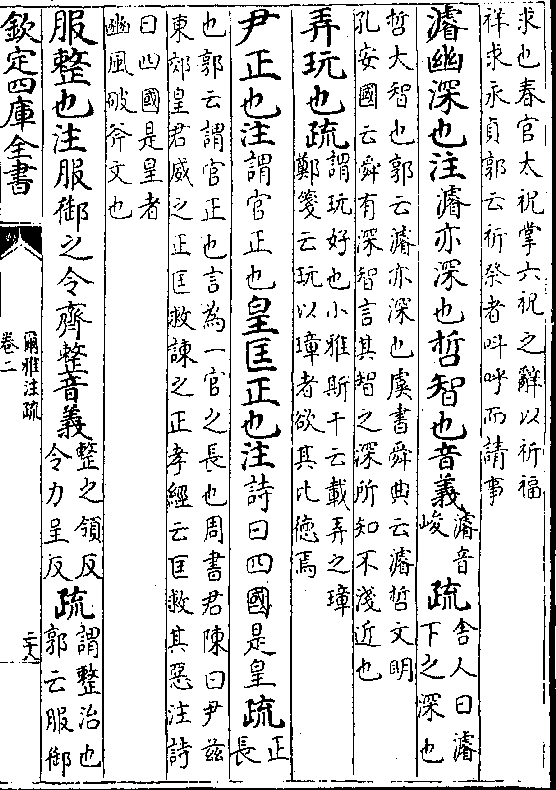 求也春官太祝掌六祝之辭以祈福
祥求永貞郭云祈祭者叫呼而請事
濬幽深也注濬亦深也哲智也音義濬音
峻
疏舍人曰濬
下之深也
哲大智也郭云濬亦深也虞書舜典云濬哲文明
孔安國云舜有深智言其智之深所知不淺近也
弄玩也疏謂玩好也小雅斯干云載弄之璋
鄭箋云玩以璋者欲其比德焉
尹正也注謂官正也皇匡正也注詩曰四國是皇疏正
長
也郭云謂官正也言為一官之長也周書君陳曰尹兹
東郊皇君威之正匡救諫之正孝經云匡救其惡注詩
曰四國是皇者
豳風破斧文也
服整也注服御之令齊整音義整之領反
令力呈反
疏謂整治也
郭云服御
欽定四庫全書
爾雅注疏
卷二
二十八